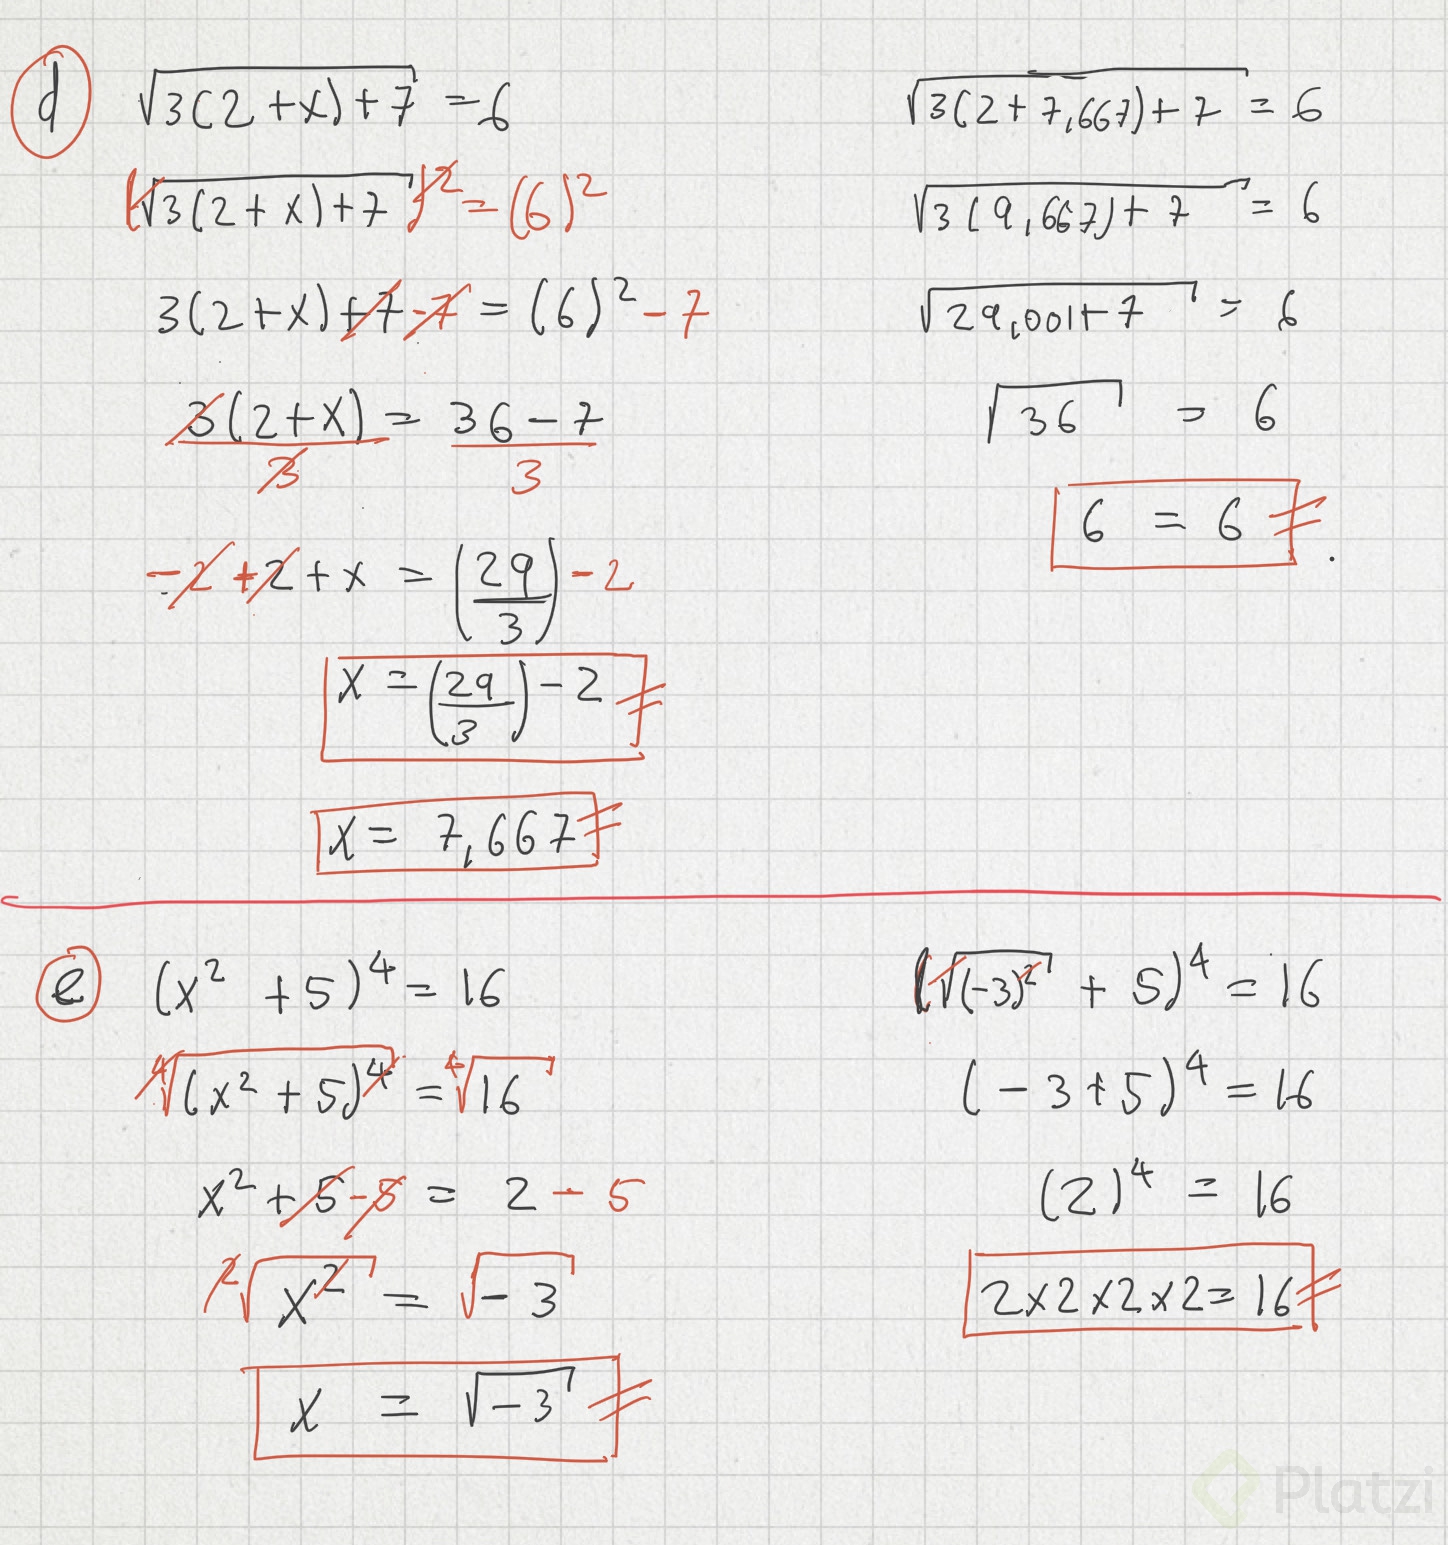 d
√3(2+x)+7 = 6
(√3(2+x)+7)² = (6)²
3(2+x)+7-7 = (6)²-7
3(2+x) = 36-7
3 3
-2+2+x = (29/3)-2
x = (29/3)-2
x = 7,667
√3(2+7,667)+7 = 6
√3(9,667)+7 = 6
√29,001+7 = 6
√36 = 6
6 = 6 .
e
(x²+5)⁴ = 16
⁴√(x²+5)⁴ = ⁴√16
x²+5-5 = 2-5
²√x² = √-3
x = √-3
(√(-3)²+5)⁴ = 16
(-3+5)⁴ = 16
(2)⁴ = 16
2x2x2x2=16
Platzi